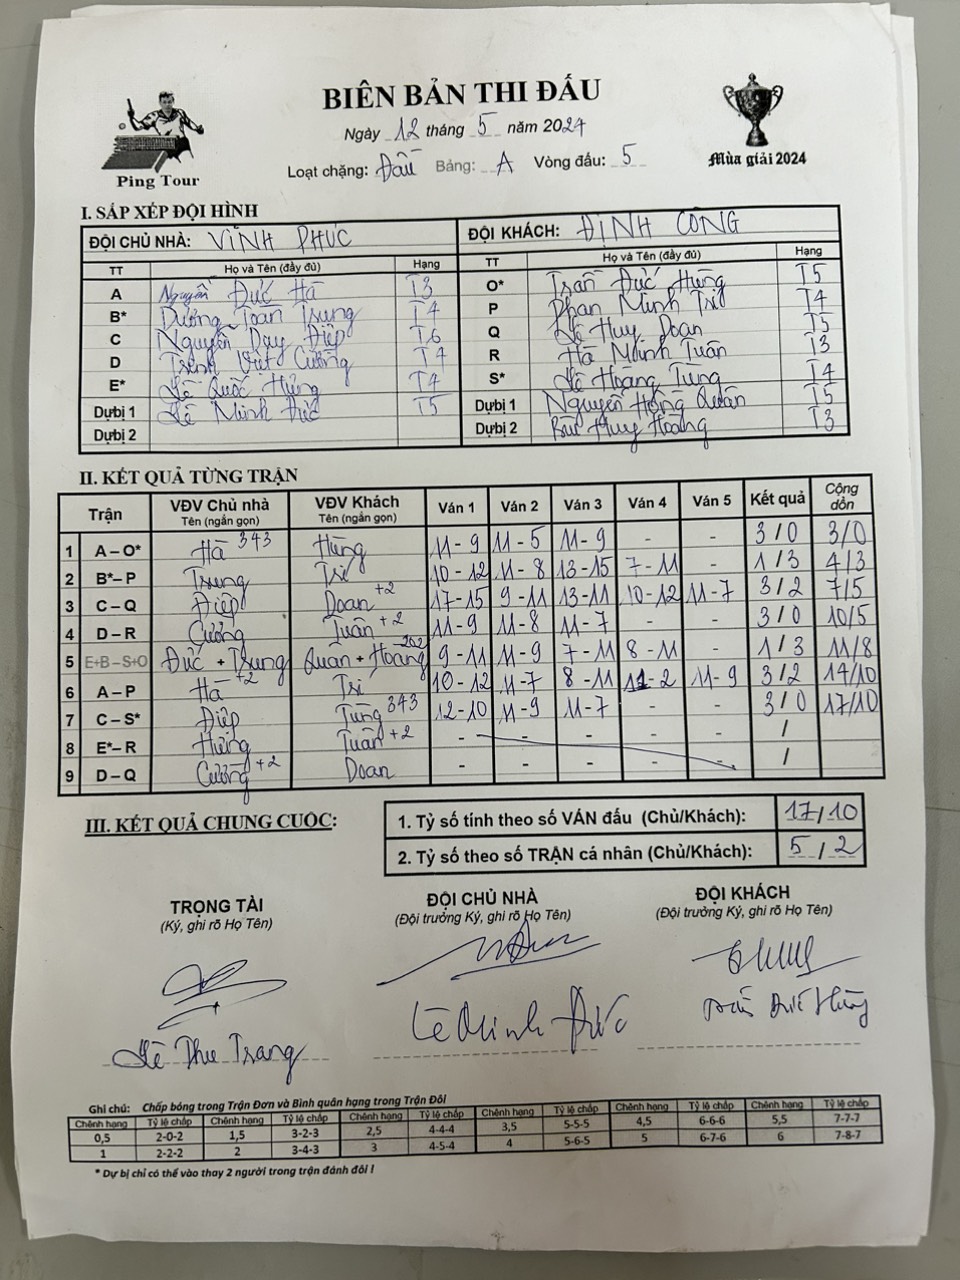 BIÊN BẢN THI ĐẤU
Ngày 12 tháng 5 năm 2024
Loạt chặng: Đấu Bảng: A Vòng đấu: 5
Ping Tour
Mùa giải 2024
I. SẮP XẾP ĐỘI HÌNH
ĐỘI CHỦ NHÀ: VĨNH PHÚC ĐỘI KHÁCH: ĐỊNH CÔNG
TT Họ và Tên (đầy đủ) Hạng TT Họ và Tên (đầy đủ) Hạng
A Nguyễn Đức Hà T3 O* Trần Đức Hùng T5
B* Dương Toàn Trung T4 P Phan Minh Trí T4
C Nguyễn Duy Điệp T6 Q Lê Huy Doan T5
D Trịnh Việt Cường T4 R Hà Minh Tuân T3
E* Lê Quốc Hưng T4 S* Lê Hoàng Tùng T4
Dự bị 1 Lê Minh Đức T5 Dự bị 1 Nguyễn Hồng Quân T5
Dự bị 2 Dự bị 2 Bùi Huy Hoàng T3
II. KẾT QUẢ TỪNG TRẬN
Trận VĐV Chủ nhà Tên (ngắn gọn) VĐV Khách Tên (ngắn gọn) Ván 1 Ván 2 Ván 3 Ván 4 Ván 5 Kết quả Cộng dồn
1 A – O* Hà 343 Hùng 11 - 9 11 - 5 11 - 9 - - 3 / 0 3/0
2 B* – P Trung Trí 10 - 12 11 - 8 13 - 15 7 - 11 - 1 / 3 4/3
3 C – Q Điệp Doan +2 17 - 15 9 - 11 13 - 11 10 - 12 11 - 7 3 / 2 7/5
4 D – R Cường Tuân +2 11 - 9 11 - 8 11 - 7 - - 3 / 0 10/5
5 E+B – S+O Đức + Trung Quân + Hoàng 202 9 - 11 11 - 9 7 - 11 8 - 11 - 1 / 3 11/8
6 A – P Hà +2 Trí 10 - 12 11 - 7 8 - 11 11 - 2 11 - 9 3 / 2 14/10
7 C – S* Điệp Tùng 343 12 - 10 11 - 9 11 - 7 - - 3 / 0 17/10
8 E* – R Hưng Tuân +2 - - - - - /
9 D – Q Cường +2 Doan - - - - - /
III. KẾT QUẢ CHUNG CUỘC:
1. Tỷ số tính theo số VÁN đấu (Chủ/Khách): 17/10
2. Tỷ số theo số TRẬN cá nhân (Chủ/Khách): 5 / 2
TRỌNG TÀI ĐỘI CHỦ NHÀ ĐỘI KHÁCH
(Ký, ghi rõ Họ Tên) (Đội trưởng Ký, ghi rõ Họ Tên) (Đội trưởng Ký, ghi rõ Họ Tên)
Lê Thu Trang Lê Minh Đức Trần Đức Hùng
Ghi chú: Chấp bóng trong Trận Đơn và Bình quân hạng trong Trận Đôi
Chênh hạng Tỷ lệ chấp Chênh hạng Tỷ lệ chấp Chênh hạng Tỷ lệ chấp Chênh hạng Tỷ lệ chấp Chênh hạng Tỷ lệ chấp Chênh hạng Tỷ lệ chấp
0,5 2-0-2 1,5 3-2-3 2,5 4-4-4 3,5 5-5-5 4,5 6-6-6 5,5 7-7-7
1 2-2-2 2 3-4-3 3 4-5-4 4 5-6-5 5 6-7-6 6 7-8-7
* Dự bị chỉ có thể vào thay 2 người trong trận đánh đôi !